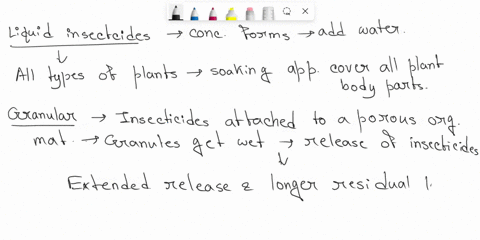 Liquid insecticides → conc. forms → add water.
↓
All types of plants → soaking app. cover all plant body parts.
Granular → Insecticides attached to a porous org. mat. → Granules get wet → release of insecticides
↓
Extended release & longer residual